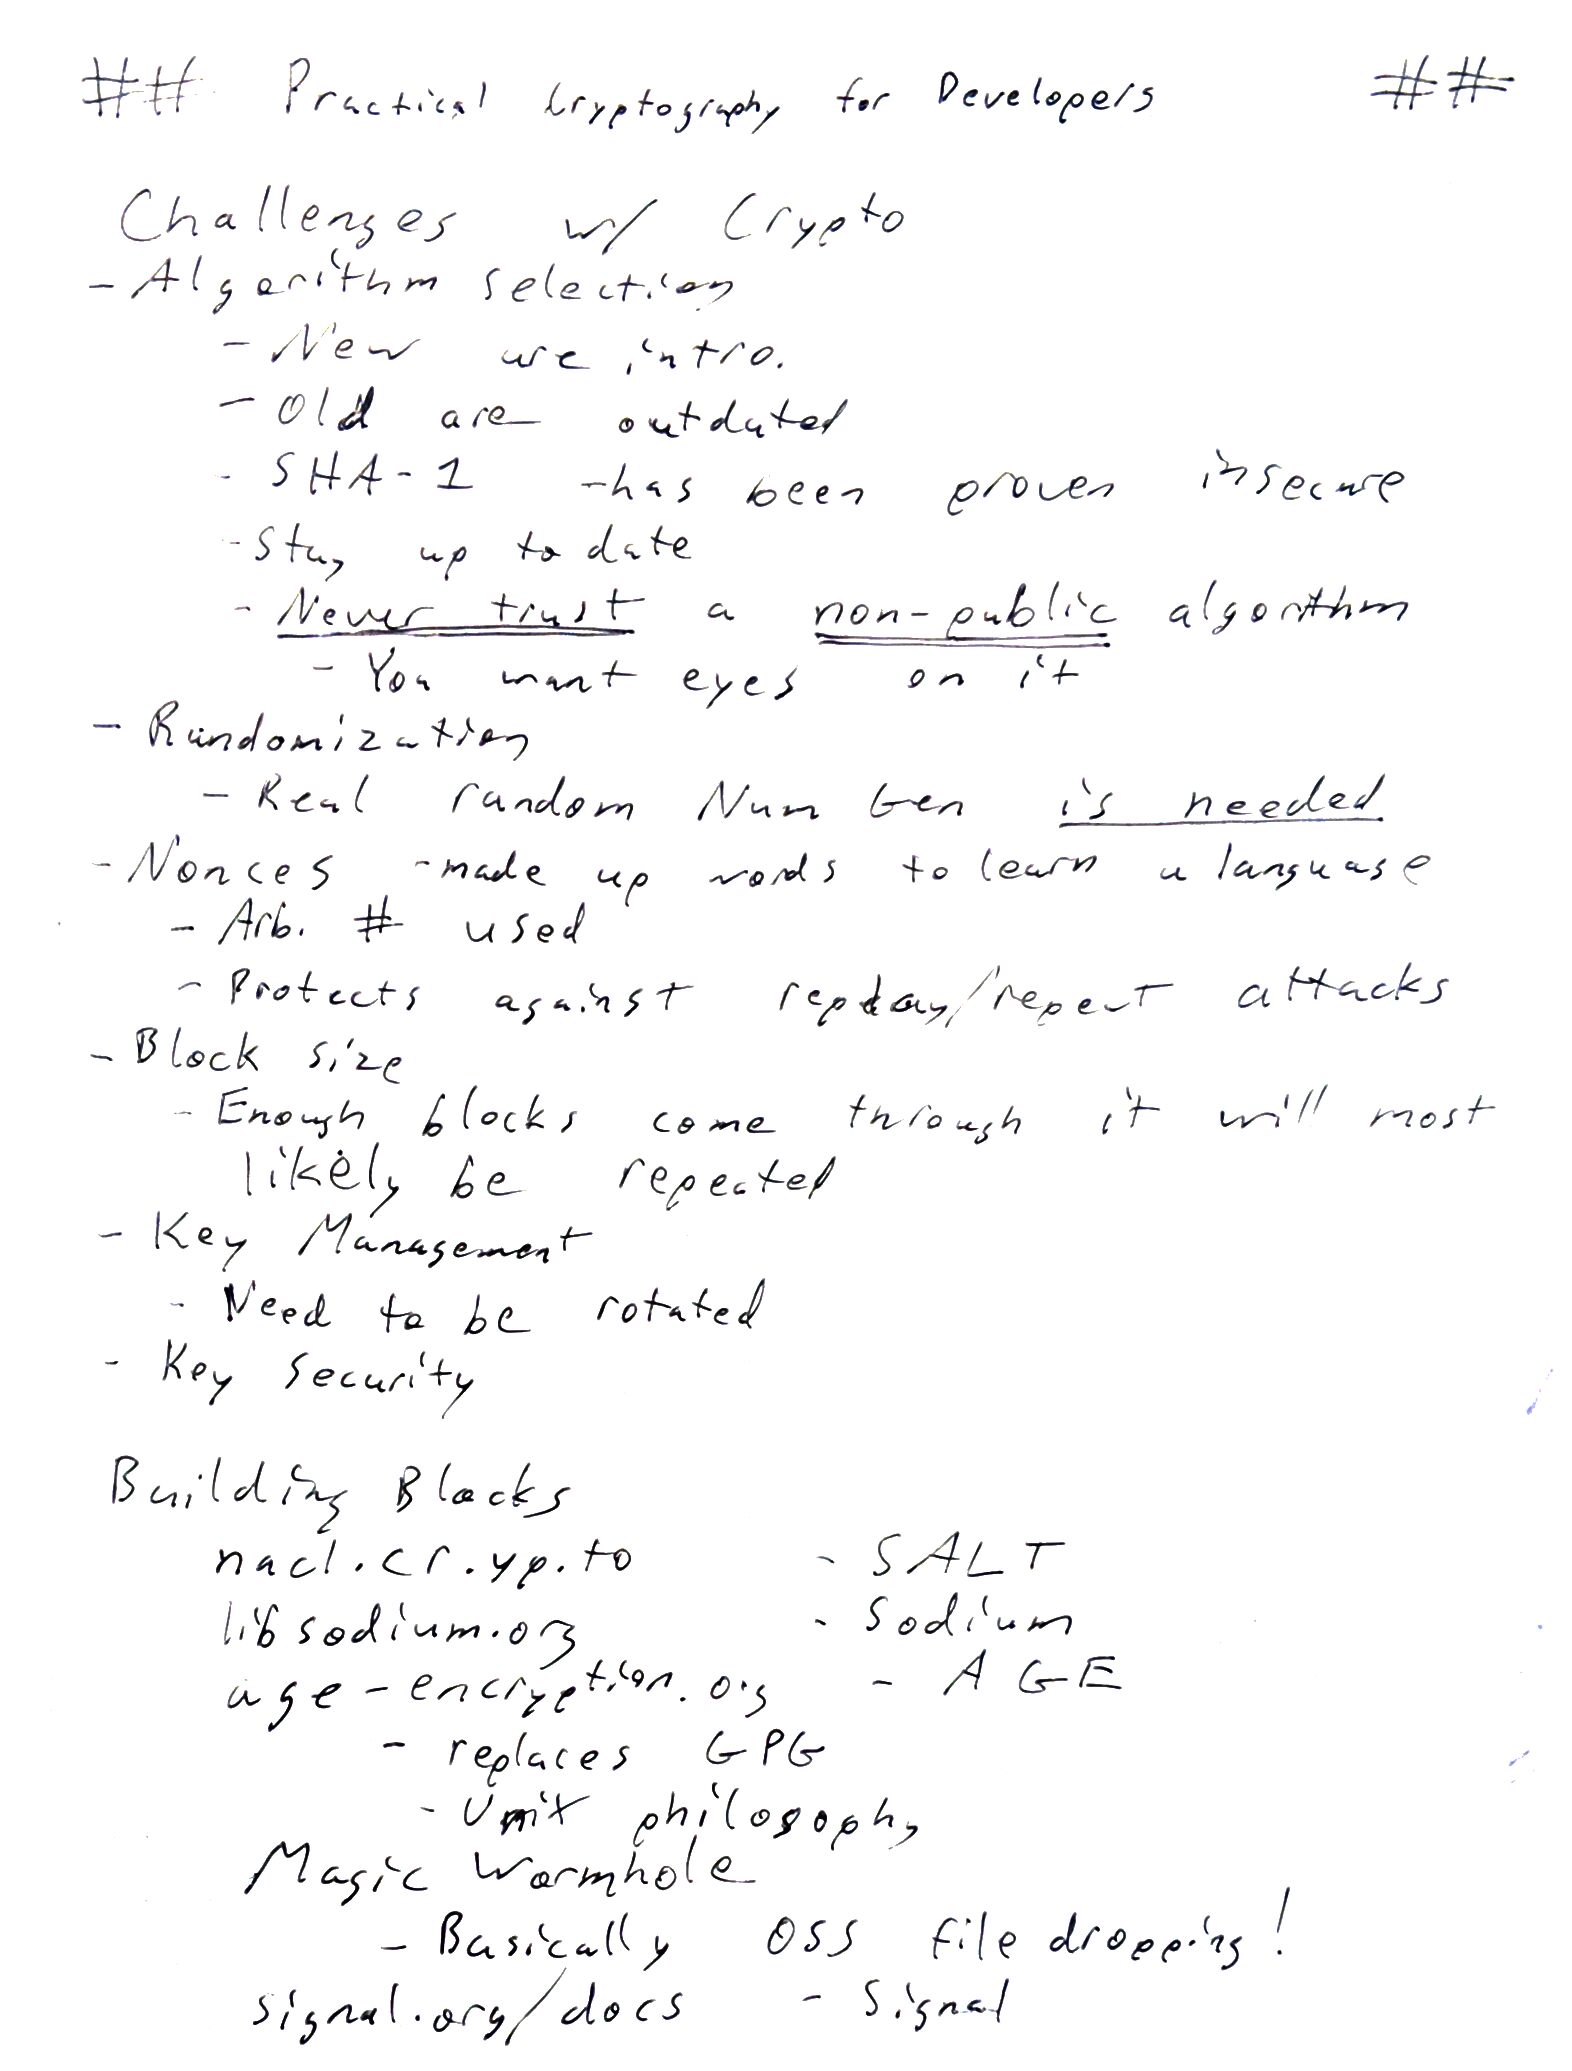 ## Practical Cryptography for Developers ##
Challenges w/ Crypto
- Algorithm selection
- New are intro.
- Old are outdated
- SHA-1 - has been proven insecure
- Stay up to date
- Never trust a non-public algorithm
- You want eyes on it
- Randomization
- Real random Num Gen is needed
- Nonces - made up words to learn a language
- Arb. # used
- Protects against replay/repeat attacks
- Block size
- Enough blocks come through it will most
likely be repeated
- Key Management
- Need to be rotated
- Key Security
Building Blocks
nacl.cr.yp.to - SALT
libsodium.org - Sodium
age-encryption.org - AGE
- replaces GPG
- Unix philosophy
Magic Wormhole
- Basically OSS file dropping!
signal.org/docs - Signal